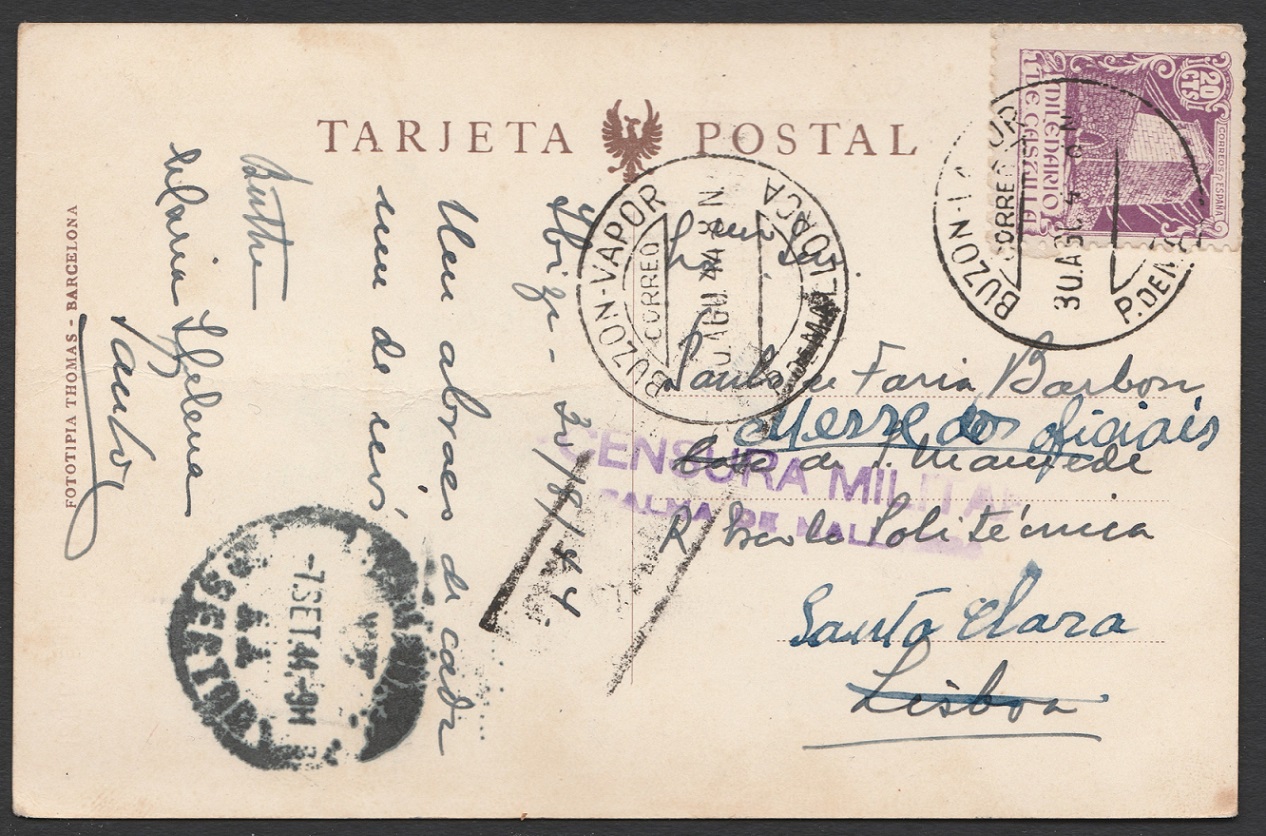 TARJETA POSTAL
FOTOTIPIA THOMAS - BARCELONA
20 CTS
CORREOS ESPAÑA
MILENARIO
DE CASTILLA
BUZON-VAPOR
CORREO
P. DE MALLORCA
AGO. 44
BUZON-VAPOR
CORREO
30 AGO. 4
P. DE M
Ibiza - 30/8/44
Um abraço de cada
um de nós
Berthe
Maria Helena
Paulo
Paulo de Faria Barbon
Messe dos oficiais
Casa de Mamede
R Escola Politécnica
Santa Clara
Lisboa
CENSURA MILITAR
PALMA DE MALLORCA
-7.SET.44.-9H